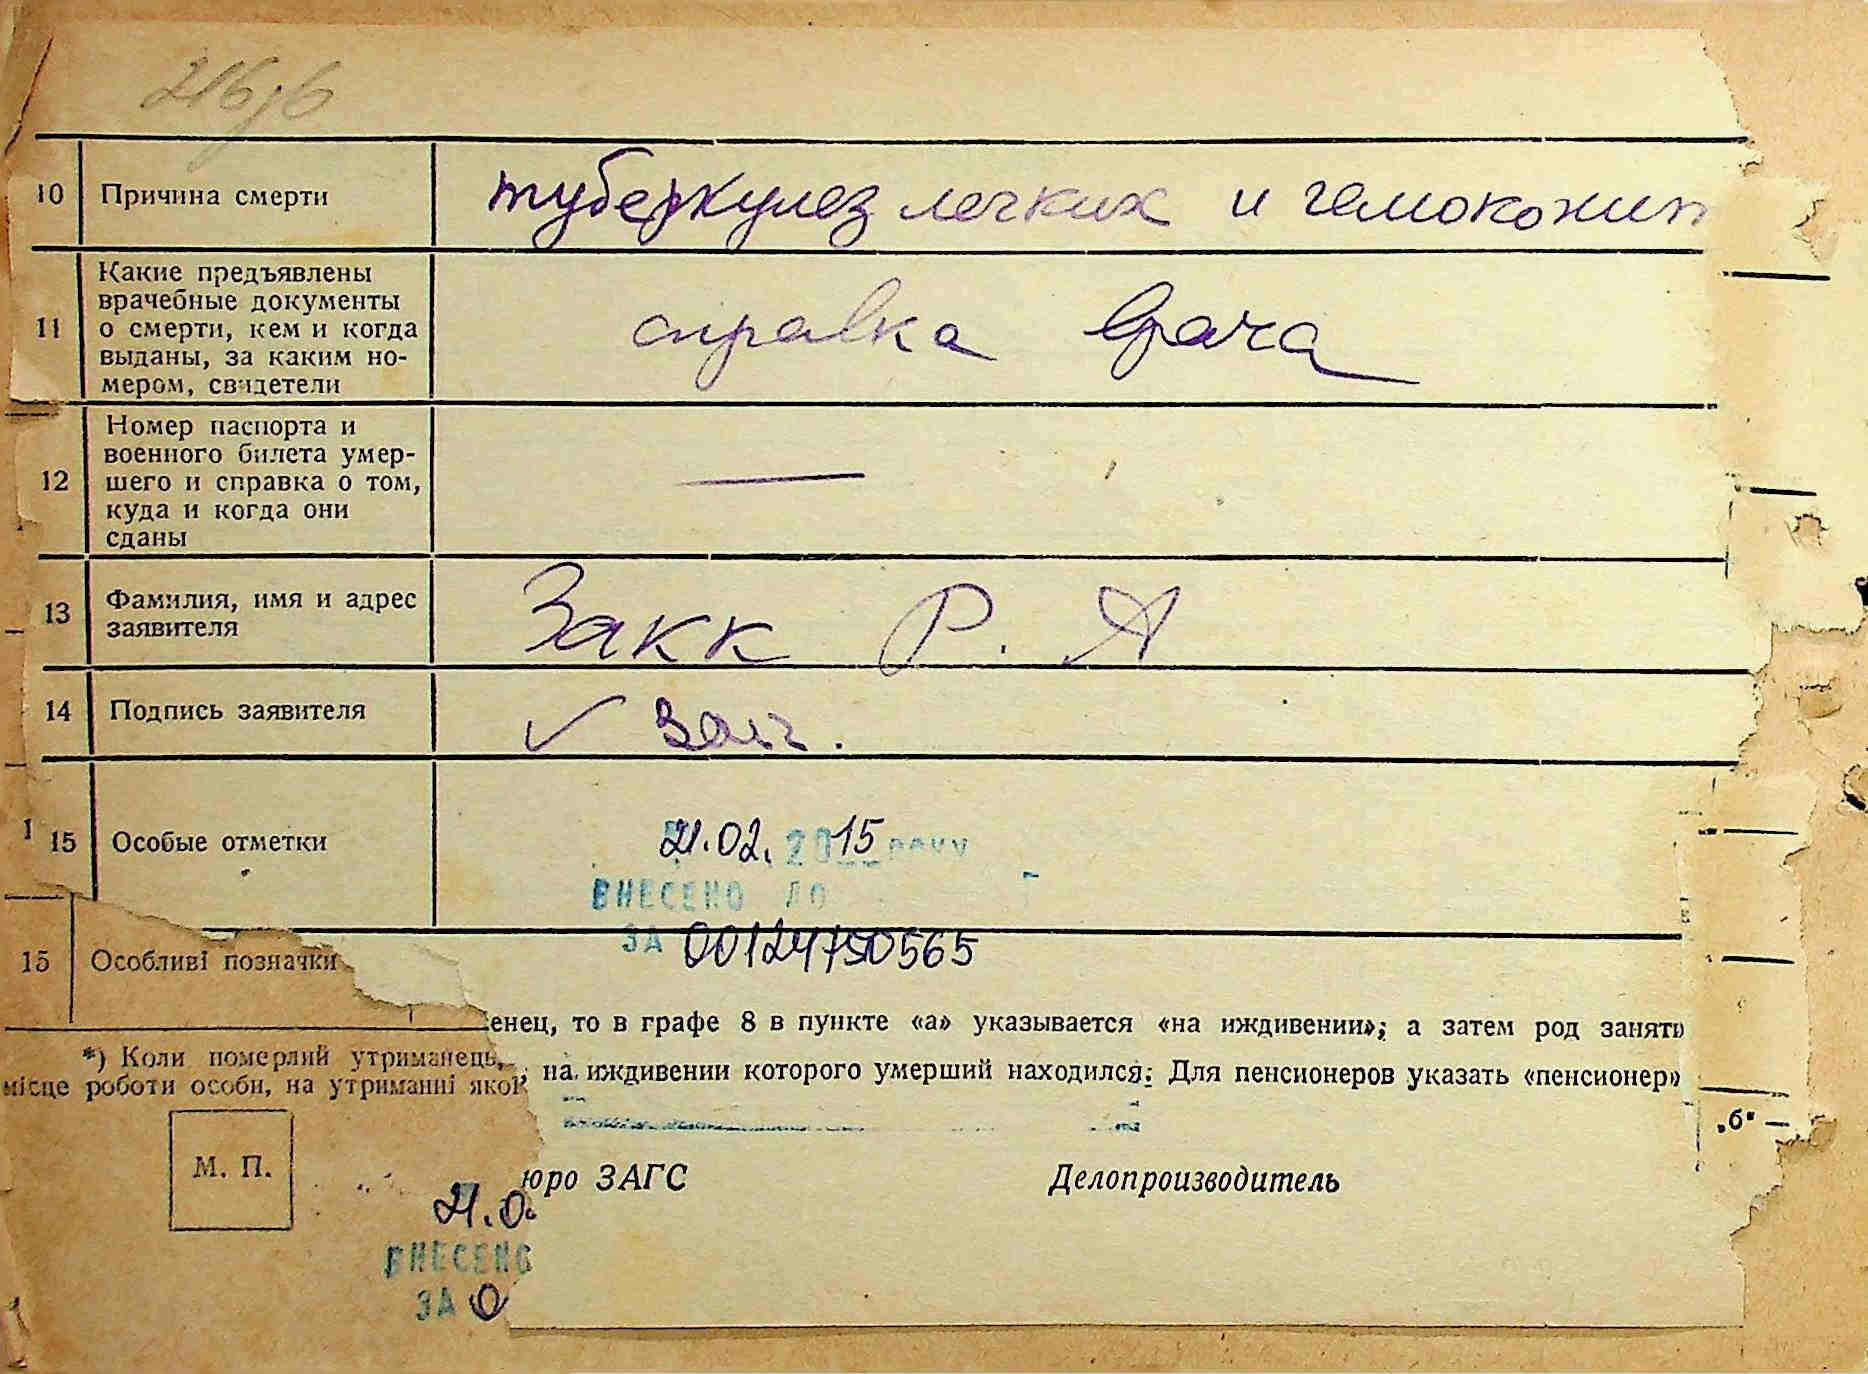 10 Причина смерти туберкулез легких и гемоколит
11 Какие предъявлены
врачебные документы
о смерти, кем и когда
выданы, за каким но-
мером, свидетели
справка врача
12 Номер паспорта и
военного билета умер-
шего и справка о том,
куда и когда они
сданы
—
13 Фамилия, имя и адрес
заявителя
Закк Р. А
14 Подпись заявителя ✓ Закк.
1 15 Особые отметки
21.02. 2015 року
ВНЕСЕНО ДО
ЗА 00124750565
15 Особливі позначки
енец, то в графе 8 в пункте «а» указывается «на иждивении»; а затем род заняти
*) Коли померлий утриманець,
на иждивении которого умерший находился: Для пенсионеров указать «пенсионер»
місце роботи особи, на утриманні якої
„б" —
М. П.
юро ЗАГС Делопроизводитель
21.0
ВНЕСЕНО
ЗА 0